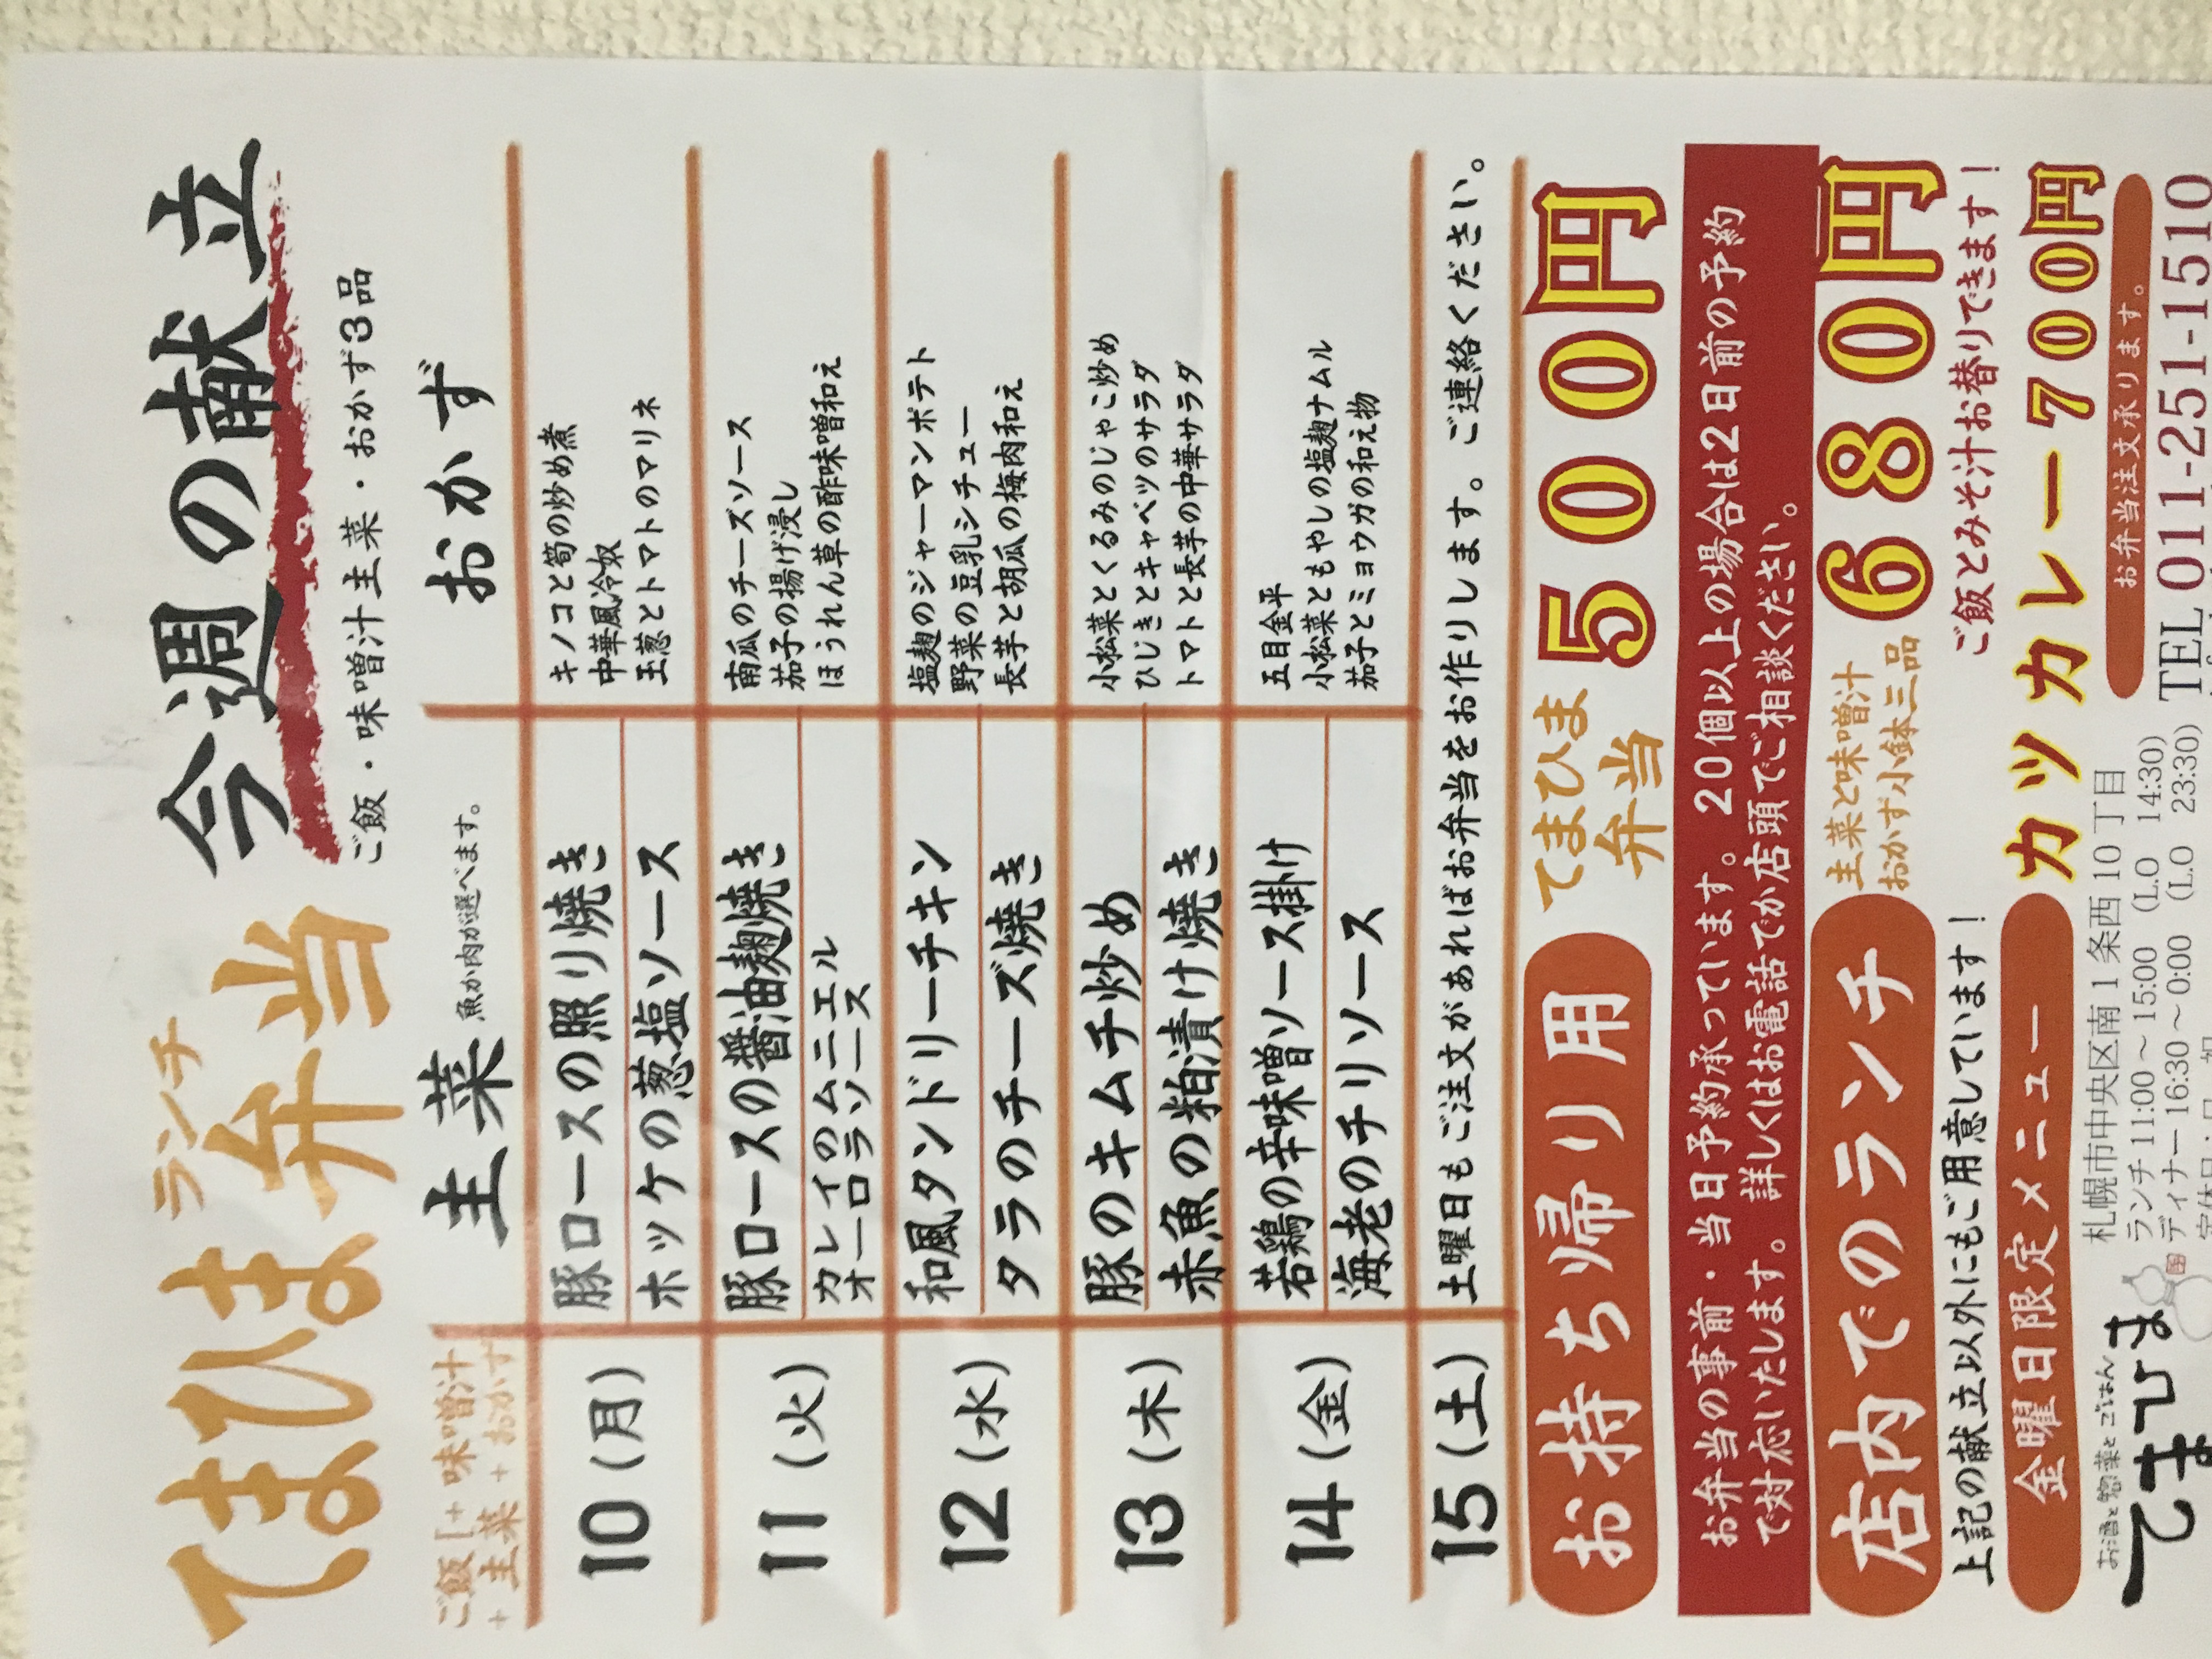 ランチ
てまひま弁当
今週の献立
ご飯・味噌汁主菜・おかず3品
ご飯 + 味噌汁
+ 主菜 + おかず
主菜 魚か肉が選べます。
おかず
10(月)
豚ロースの照り焼き
ホッケの葱塩ソース
キノコと筍の炒め煮
中華風冷奴
玉葱とトマトのマリネ
11(火)
豚ロースの醤油麹焼き
カレイのムニエル
オーロラソース
南瓜のチーズソース
茄子の揚げ浸し
ほうれん草の酢味噌和え
12(水)
和風タンドリーチキン
タラのチーズ焼き
塩麹のジャーマンポテト
野菜の豆乳シチュー
長芋と胡瓜の梅肉和え
13(木)
豚のキムチ炒め
赤魚の粕漬け焼き
小松菜とくるみのじゃこ炒め
ひじきとキャベツのサラダ
トマトと長芋の中華サラダ
14(金)
若鶏の辛味噌ソース掛け
海老のチリソース
五目金平
小松菜ともやしの塩麹ナムル
茄子とミョウガの和え物
15(土)
土曜日もご注文があればお弁当をお作りします。ご連絡ください。
お持ち帰り用
てまひま
弁当
500円
お弁当の事前・当日予約承っています。20個以上の場合は2日前の予約
で対応いたします。詳しくはお電話でか店頭でご相談ください。
店内でのランチ
主菜と味噌汁
おかず小鉢三品
680円
上記の献立以外にもご用意しています！
ご飯とみそ汁お替りできます！
金曜日限定メニュー
カツカレー700円
お酒と惣菜とごはん
てまひま
札幌市中央区南1条西10丁目
ランチ11:00～15:00 (L.O 14:30)
ディナー16:30～0:00 (L.O 23:30)
お弁当注文承ります。
TEL 011-251-1510